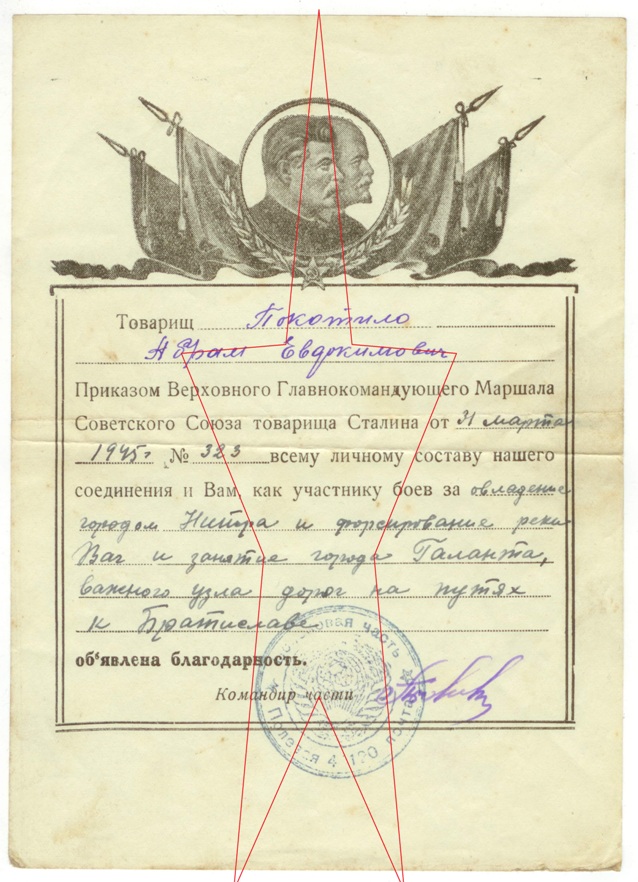 Товарищ Покотило
Абрам Евдокимович
Приказом Верховного Главнокомандующего Маршала
Советского Союза товарища Сталина от 31 марта
1945г № 323 всему личному составу нашего
соединения и Вам, как участнику боев за овладение
городом Нитра и форсирование реки
Ваг и занятие города Галанта,
важного узла дорог на путях
к Братиславе
об'явлена благодарность.
Командир части
часть
Полевая почта